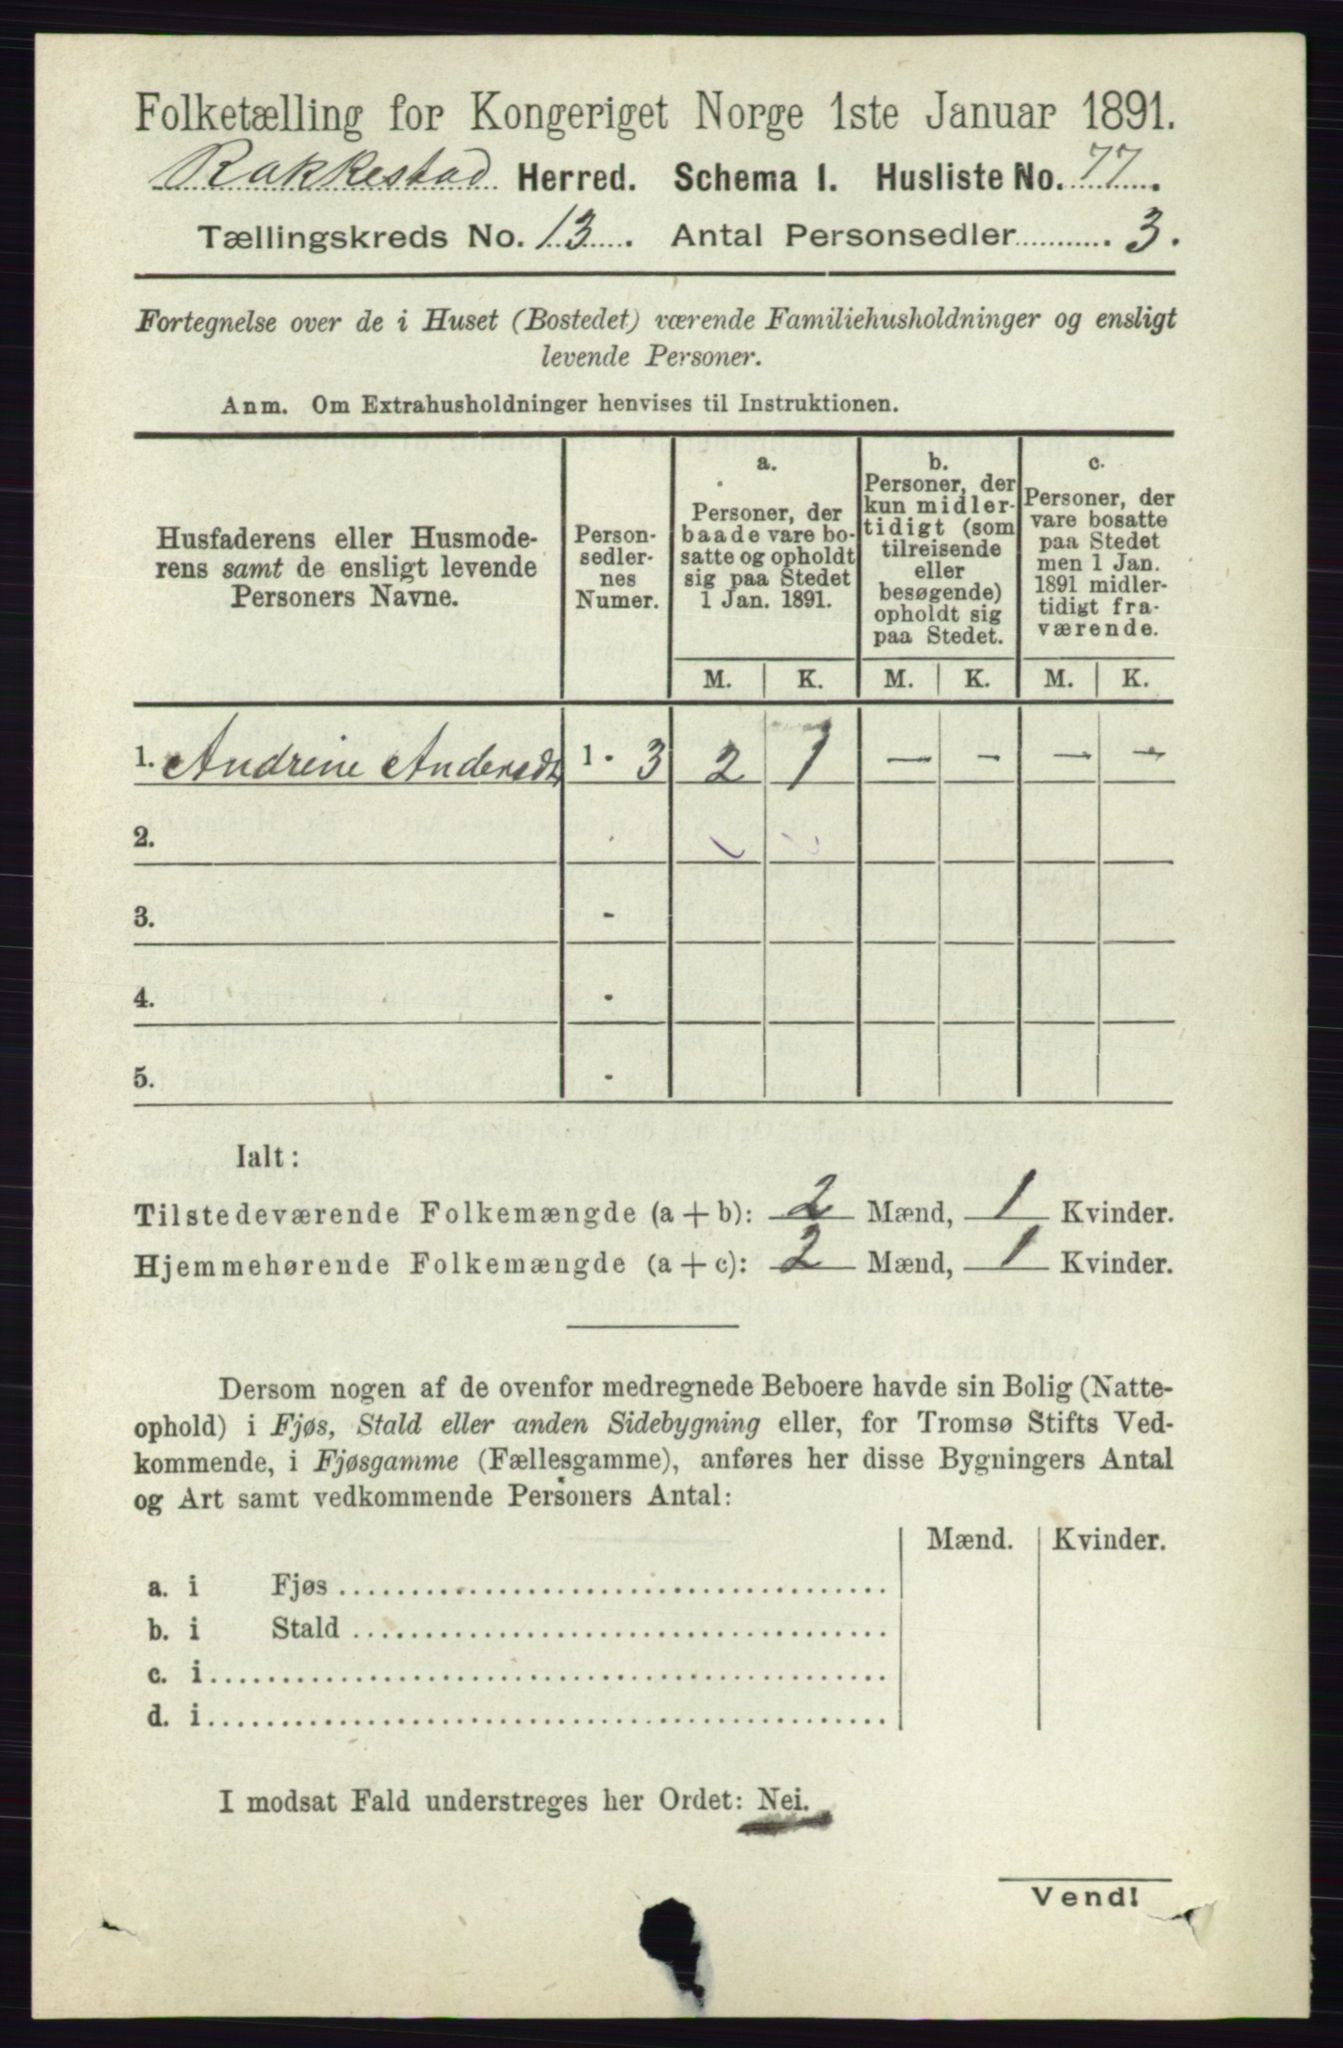 Folketælling for Kongeriget Norge 1ste Januar 1891.
Rakkestad Herred. Schema 1. Husliste No. 77.
Tællingskreds No. 13. Antal Personsedler 3.
Fortegnelse over de i Huset (Bostedet) værende Familiehusholdninger og ensligt
levende Personer.
Anm. Om Extrahusholdninger henvises til Instruktionen.
Husfaderens eller Husmode-
rens samt de ensligt levende
Personers Navne.
Person-
sedler-
nes
Numer.
a.
Personer, der
baade vare bo-
satte og opholdt
sig paa Stedet
1 Jan. 1891.
b.
Personer, der
kun midler-
tidigt (som
tilreisende
eller
besøgende)
opholdt sig
paa Stedet.
c.
Personer, der
vare bosatte
paa Stedet
men 1 Jan.
1891 midler-
tidigt fra-
værende.
M. K. M. K. M. K.
1. Andrine Andersdt 1 - 3 2 1 — - — —
2.
3. -
4. -
5. -
Ialt:
Tilstedeværende Folkemængde (a + b): 2 Mænd, 1 Kvinder.
Hjemmehørende Folkemængde (a + c): 2 Mænd, 1 Kvinder.
Dersom nogen af de ovenfor medregnede Beboere havde sin Bolig (Natte-
ophold) i Fjøs, Stald eller anden Sidebygning eller, for Tromsø Stifts Ved-
kommende, i Fjøsgamme (Fællesgamme), anføres her disse Bygningers Antal
og Art samt vedkommende Personers Antal:
Mænd. Kvinder.
a. i Fjøs
b. i Stald
c. i
d. i
I modsat Fald understreges her Ordet: Nei.
Vend!